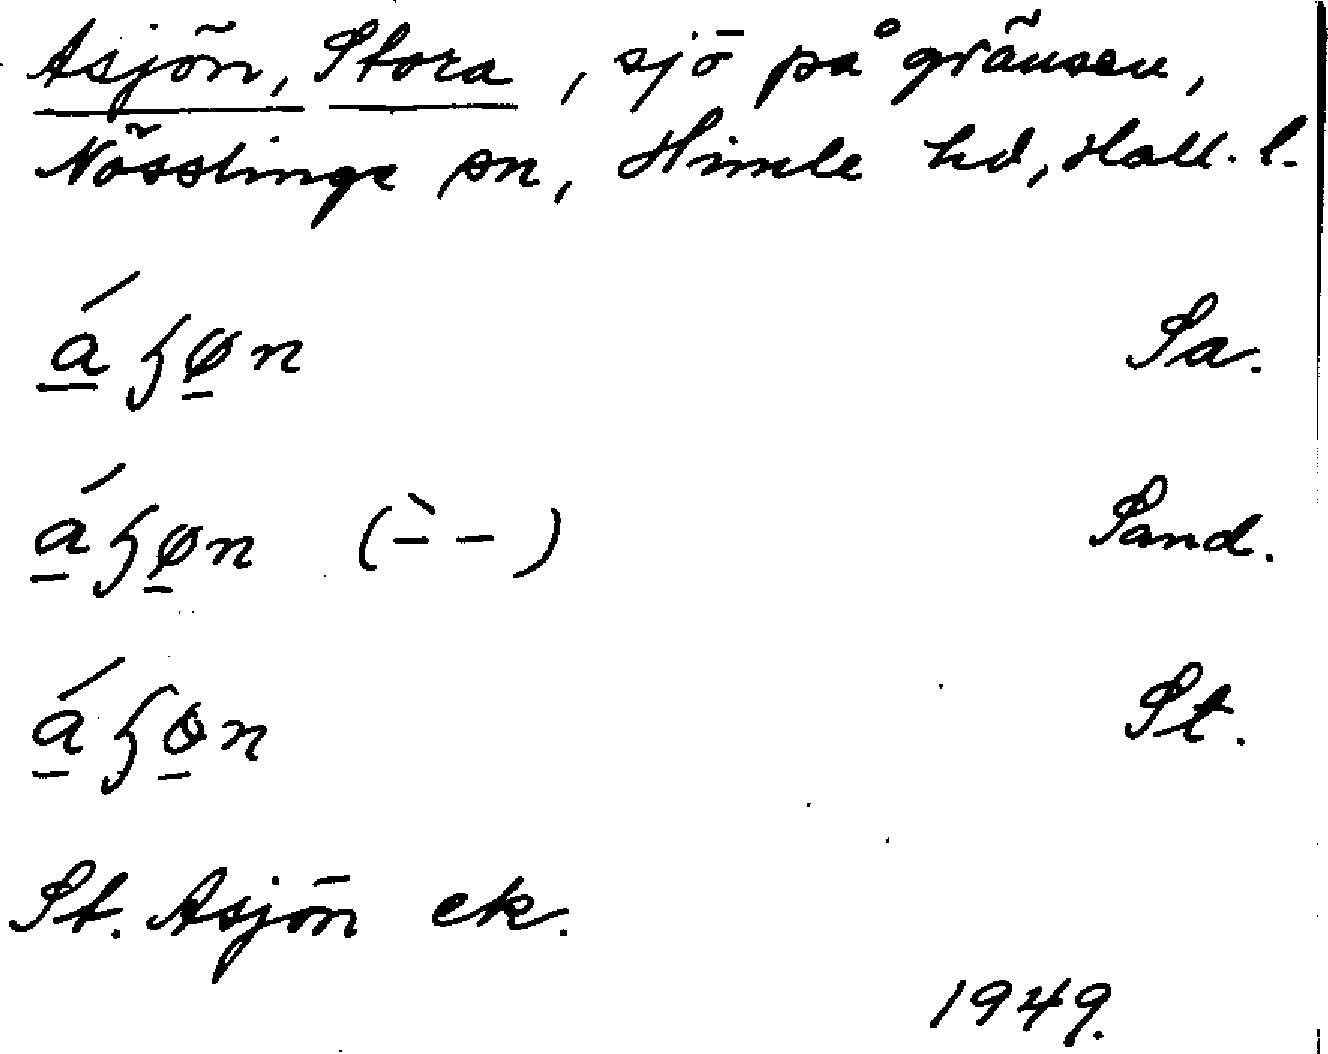 Asjön, Stora, sjö på gränsen,
Nösslinge sn, Himle hd, Hall. l.
á̱ɧø̱n Sa.
á̱ɧø̱n (-̀ -) Sand.
á̱ɧɵ̱n St.
St. Asjön ek.
1949.